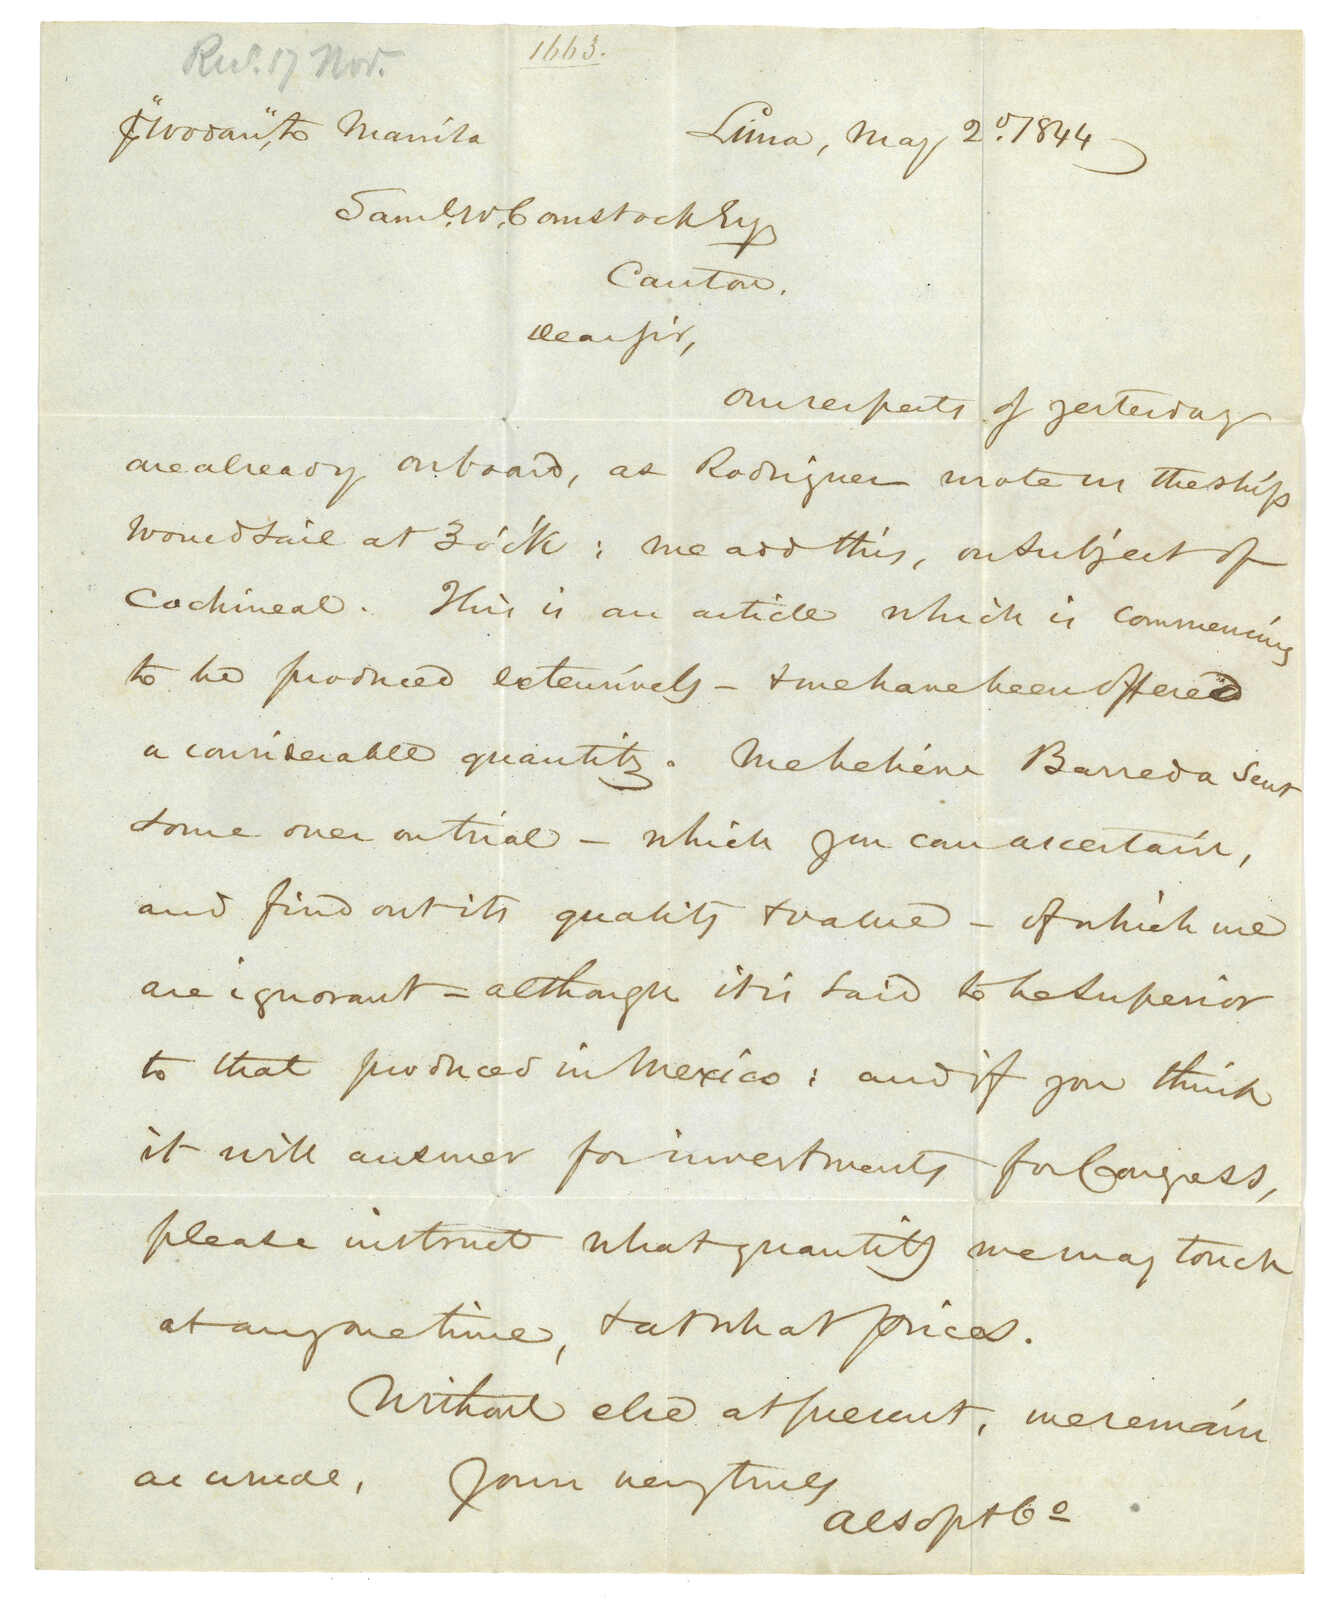 Recd. 17 Nov.
1663.
p "Wodan", to Manila
Lima, May 2d. 1844
Saml. W. Comstock Esq
Canton.
Dear Sir,
Our respects of yesterday
are already on board, as Rodriguez wrote us the ship
would sail at 3 o'ck : we add this, on subject of
Cochineal. This is an article which is commencing
to be produced extensively - & we have been offered
a considerable quantity. We believe Barreda sent
some over on trial - which you can ascertain,
and find out its quality & value - of which we
are ignorant = although it is said to be superior
to that produced in Mexico : and if you think
it will answer for investments for Congress,
please instruct what quantity we may touch
at any one time, & at what prices.
Without else at present, we remain
as usual, Yours very truly
Alsop & Co